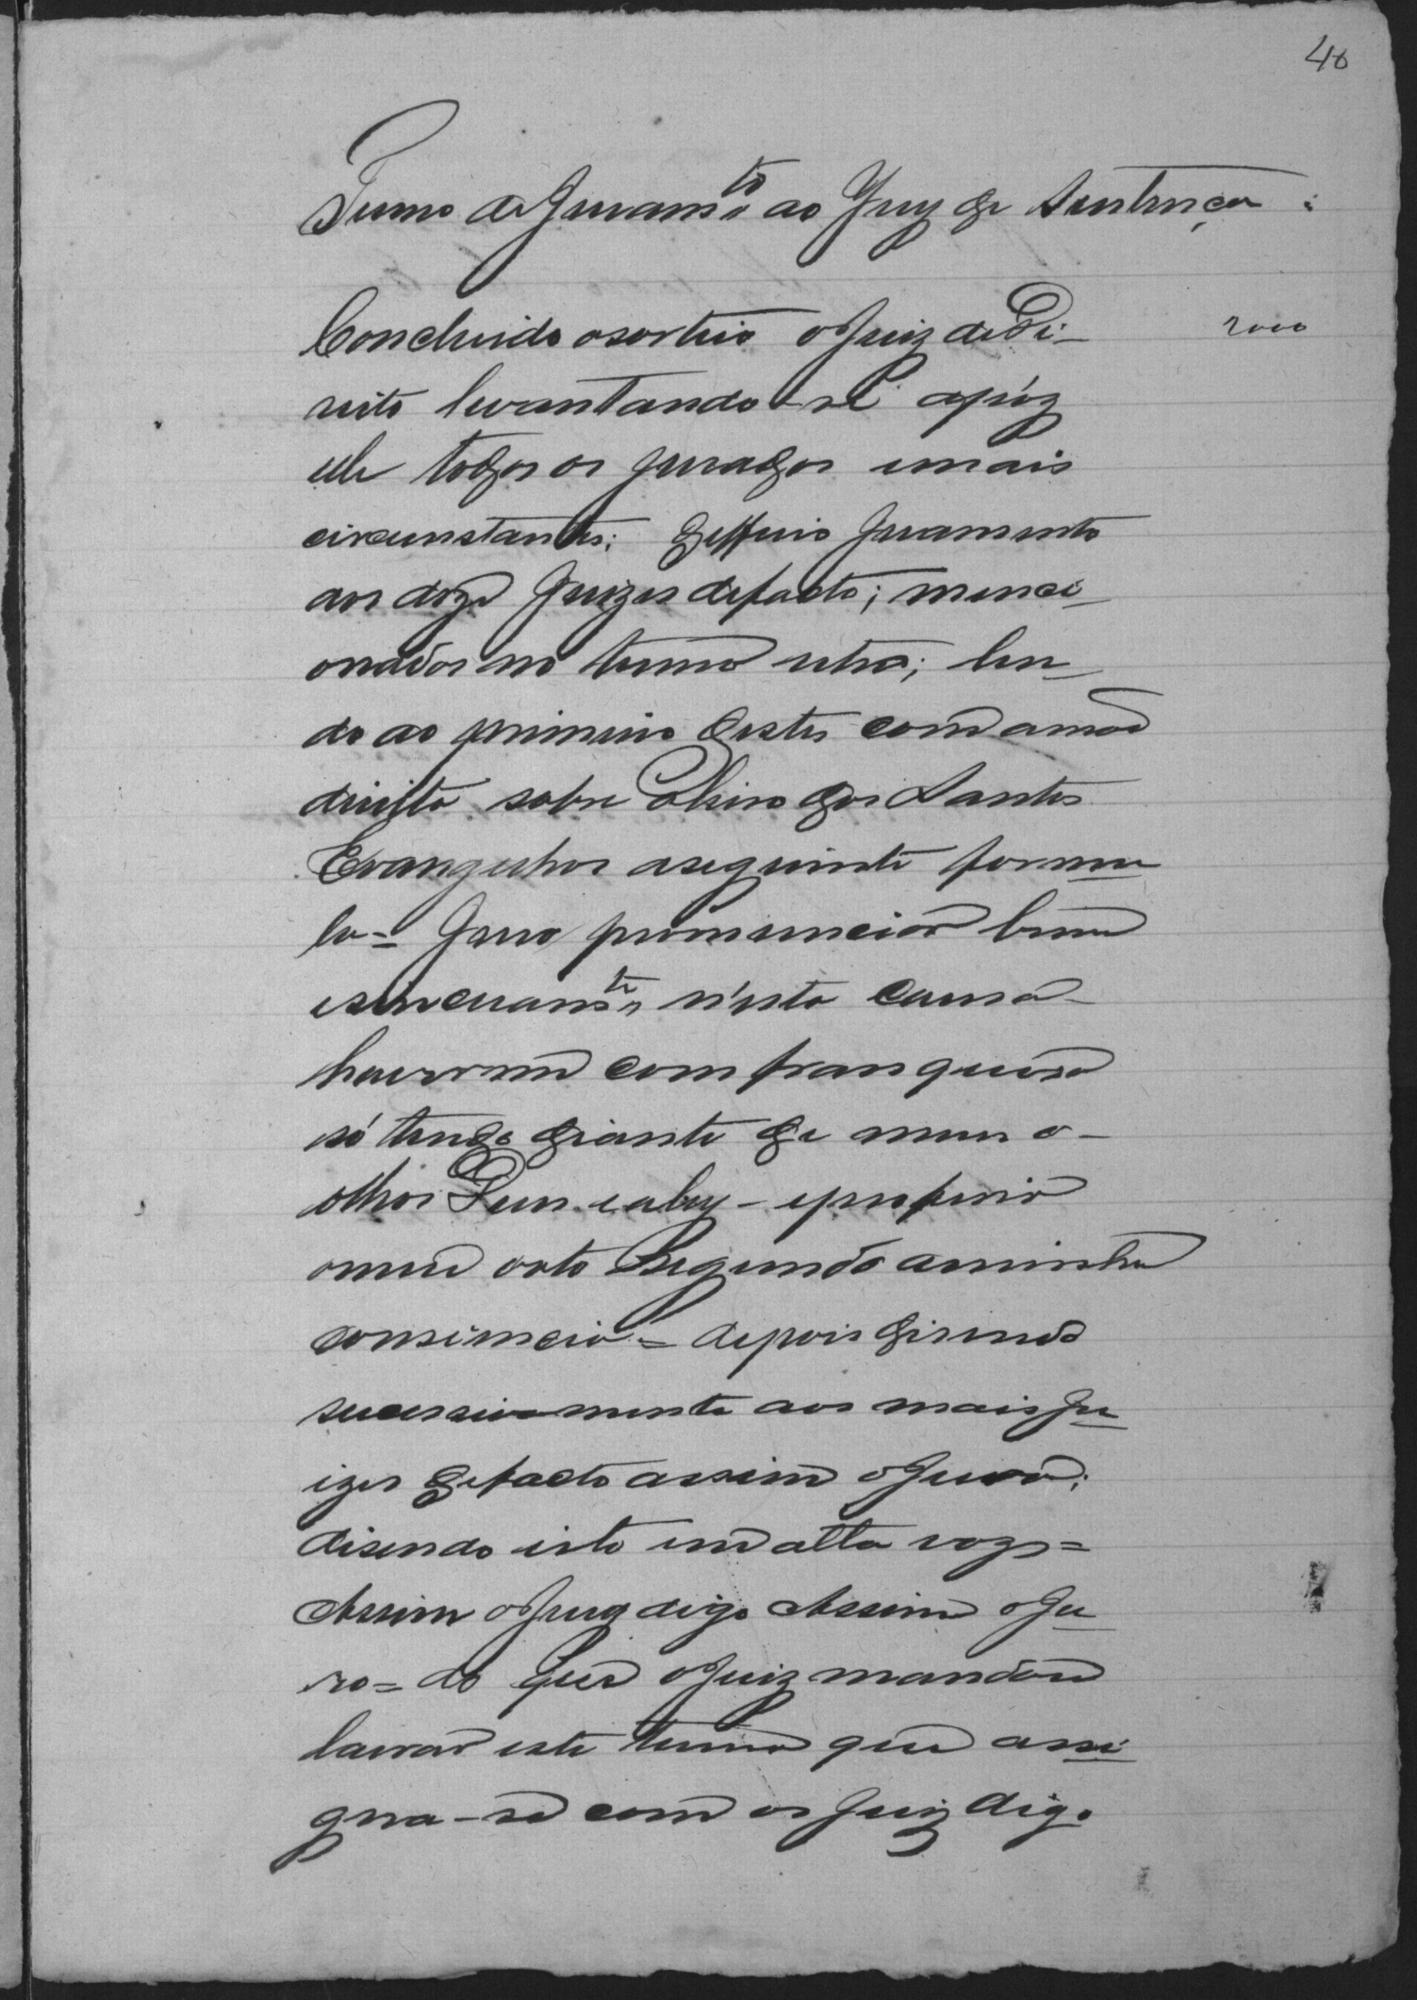 40
Termo de Juramto ao Jury de Sentença:
Concluido osorteio o Juiz de Di-
2000
reito levantando-se apóz
elle todos os jurados emais
circunstantes; defferio Juramento
aos doze Juizes defacto; menci-
onados no termo retro; len-
do ao primeiro destes com amão
direita sobre olivro dos Santos
Evangelhos aseguinte formu-
la = Juro pronunciar bem
esincerante n'esta causa
haver-me com franqueza
só tendo diante de meus o-
olhos Deus ealey - eproferir
omeu voto segundo aminha
consiencia = depois disendo
sucessivamente aos mais Ju-
izes defacto assim oJuro;
disendo isto em alta voz =
Assim oJury digo Assim oJu-
ro = do que oJuiz mandou
lavrar este termo que assi-
gna-se com os Juiz digo